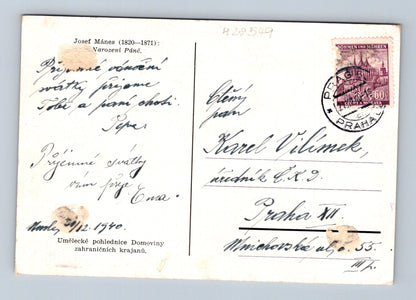 H28549
Josef Mánes (1820—1871):
Narození Páně.
Příjemné vánoční
svátky přejeme
Tobě a paní choti.
Pepa.
Příjemné svátky
vám přeje Ema.
/12 1940.
Umělecké pohlednice Domoviny
zahraničních krajanů.
BÖHMEN UND MÄHREN
60
PRAHA
Ctěný
pan
Karel Vilímek,
úředník Č.K.D.
Praha XII.
Mnichovská ul. č. 55.